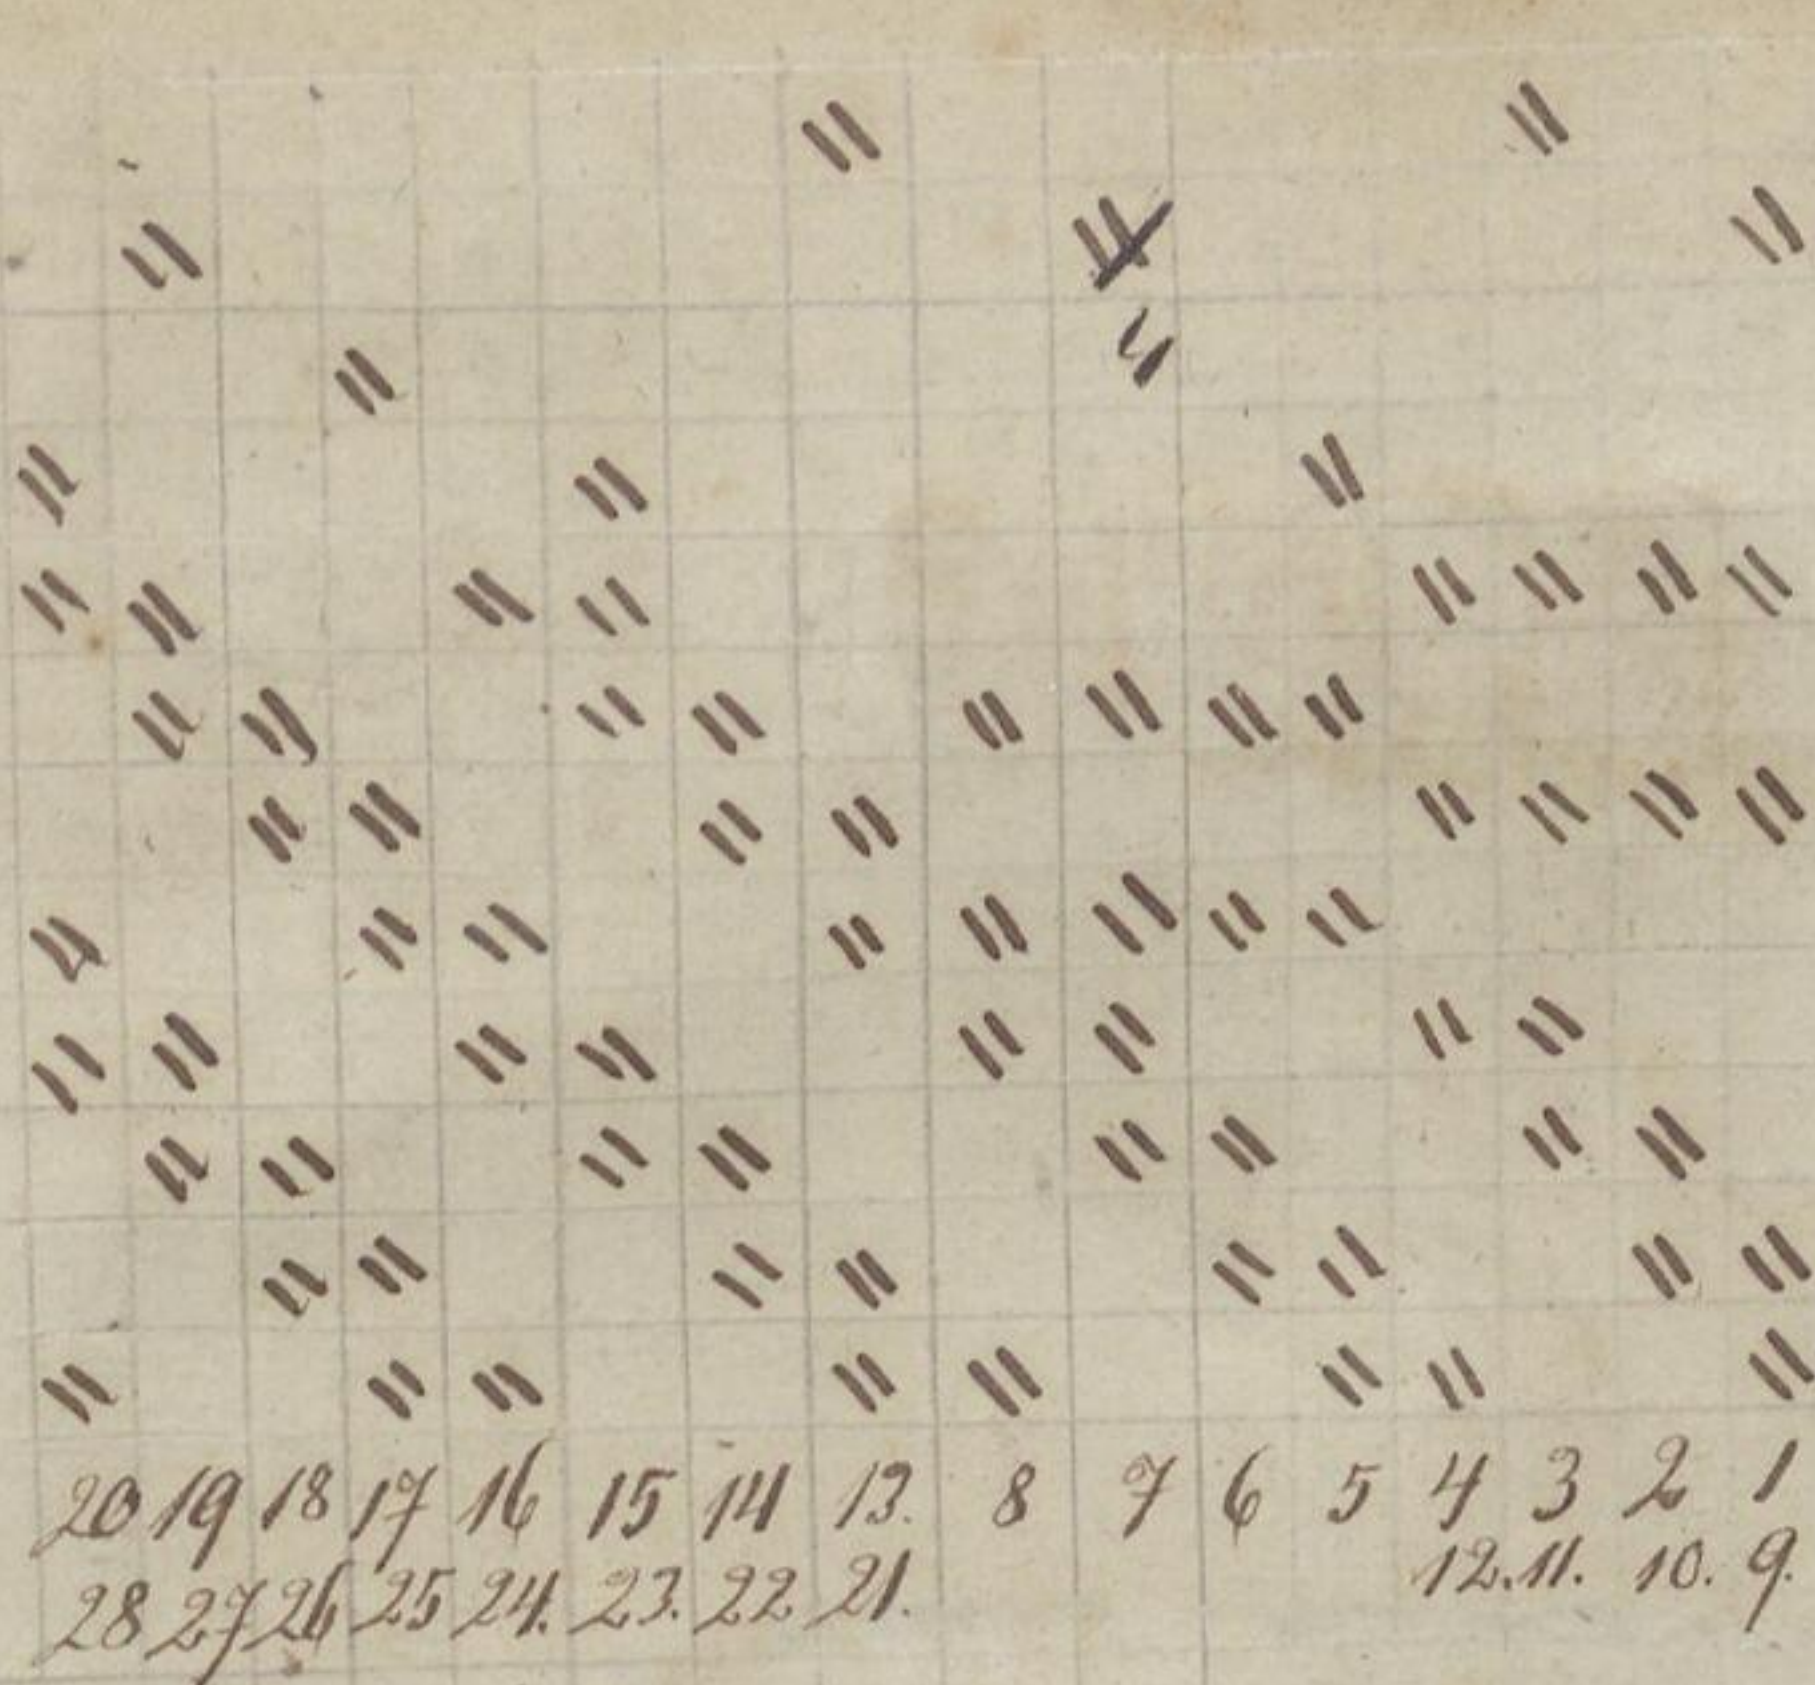 20 19 18 17 16 15 14 13. 8 7 6 5 4 3 2 1
28 27 26 25 24. 23. 22 21. 12. 11. 10. 9.